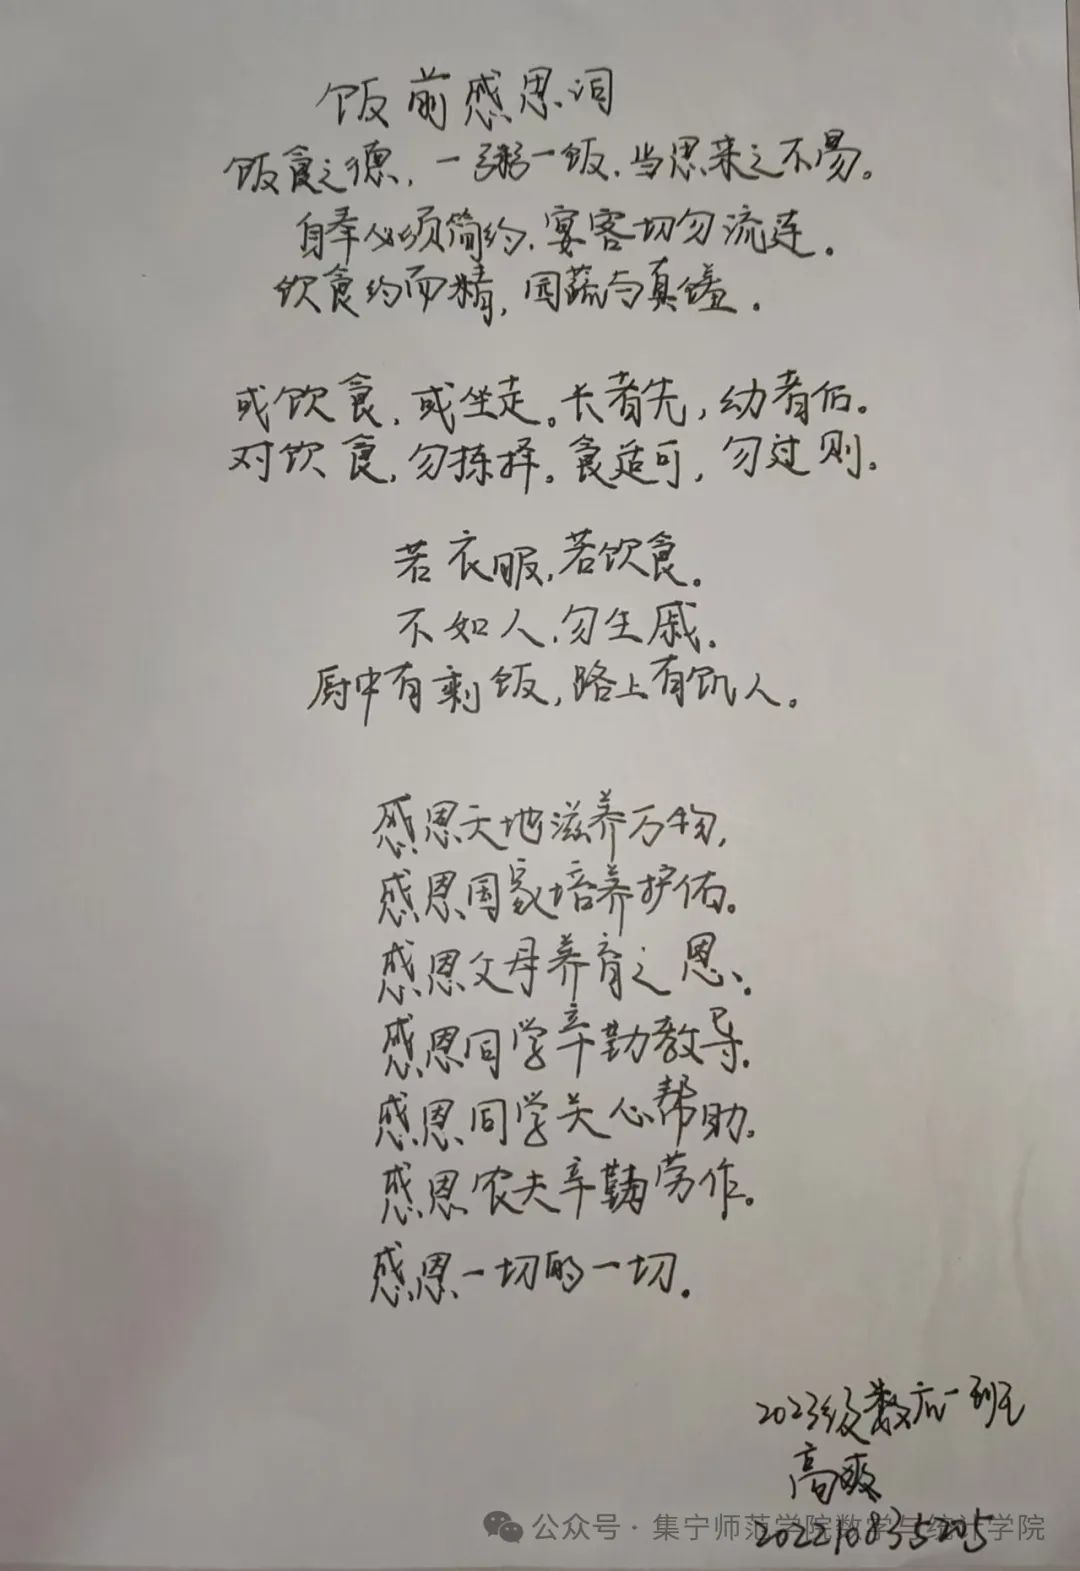 饭前感恩词
饭食之德，一粥一饭，当思来之不易。
自奉必须简约，宴客切勿流连。
饮食约而精，园蔬与真馐。
或饮食，或坐走。长者先，幼者后。
对饮食，勿拣择。食适可，勿过则。
若衣服，若饮食。
不如人，勿生戚。
厨中有剩饭，路上有饥人。
感恩天地滋养万物，
感恩国家培养护佑。
感恩父母养育之恩、
感恩同学辛勤教导.
感恩同学关心帮助。
感恩农夫辛勤劳作。
感恩一切的一切.
2023级数应一班
高爽
公众号·集宁师范学院数学与统计学院
202210835205